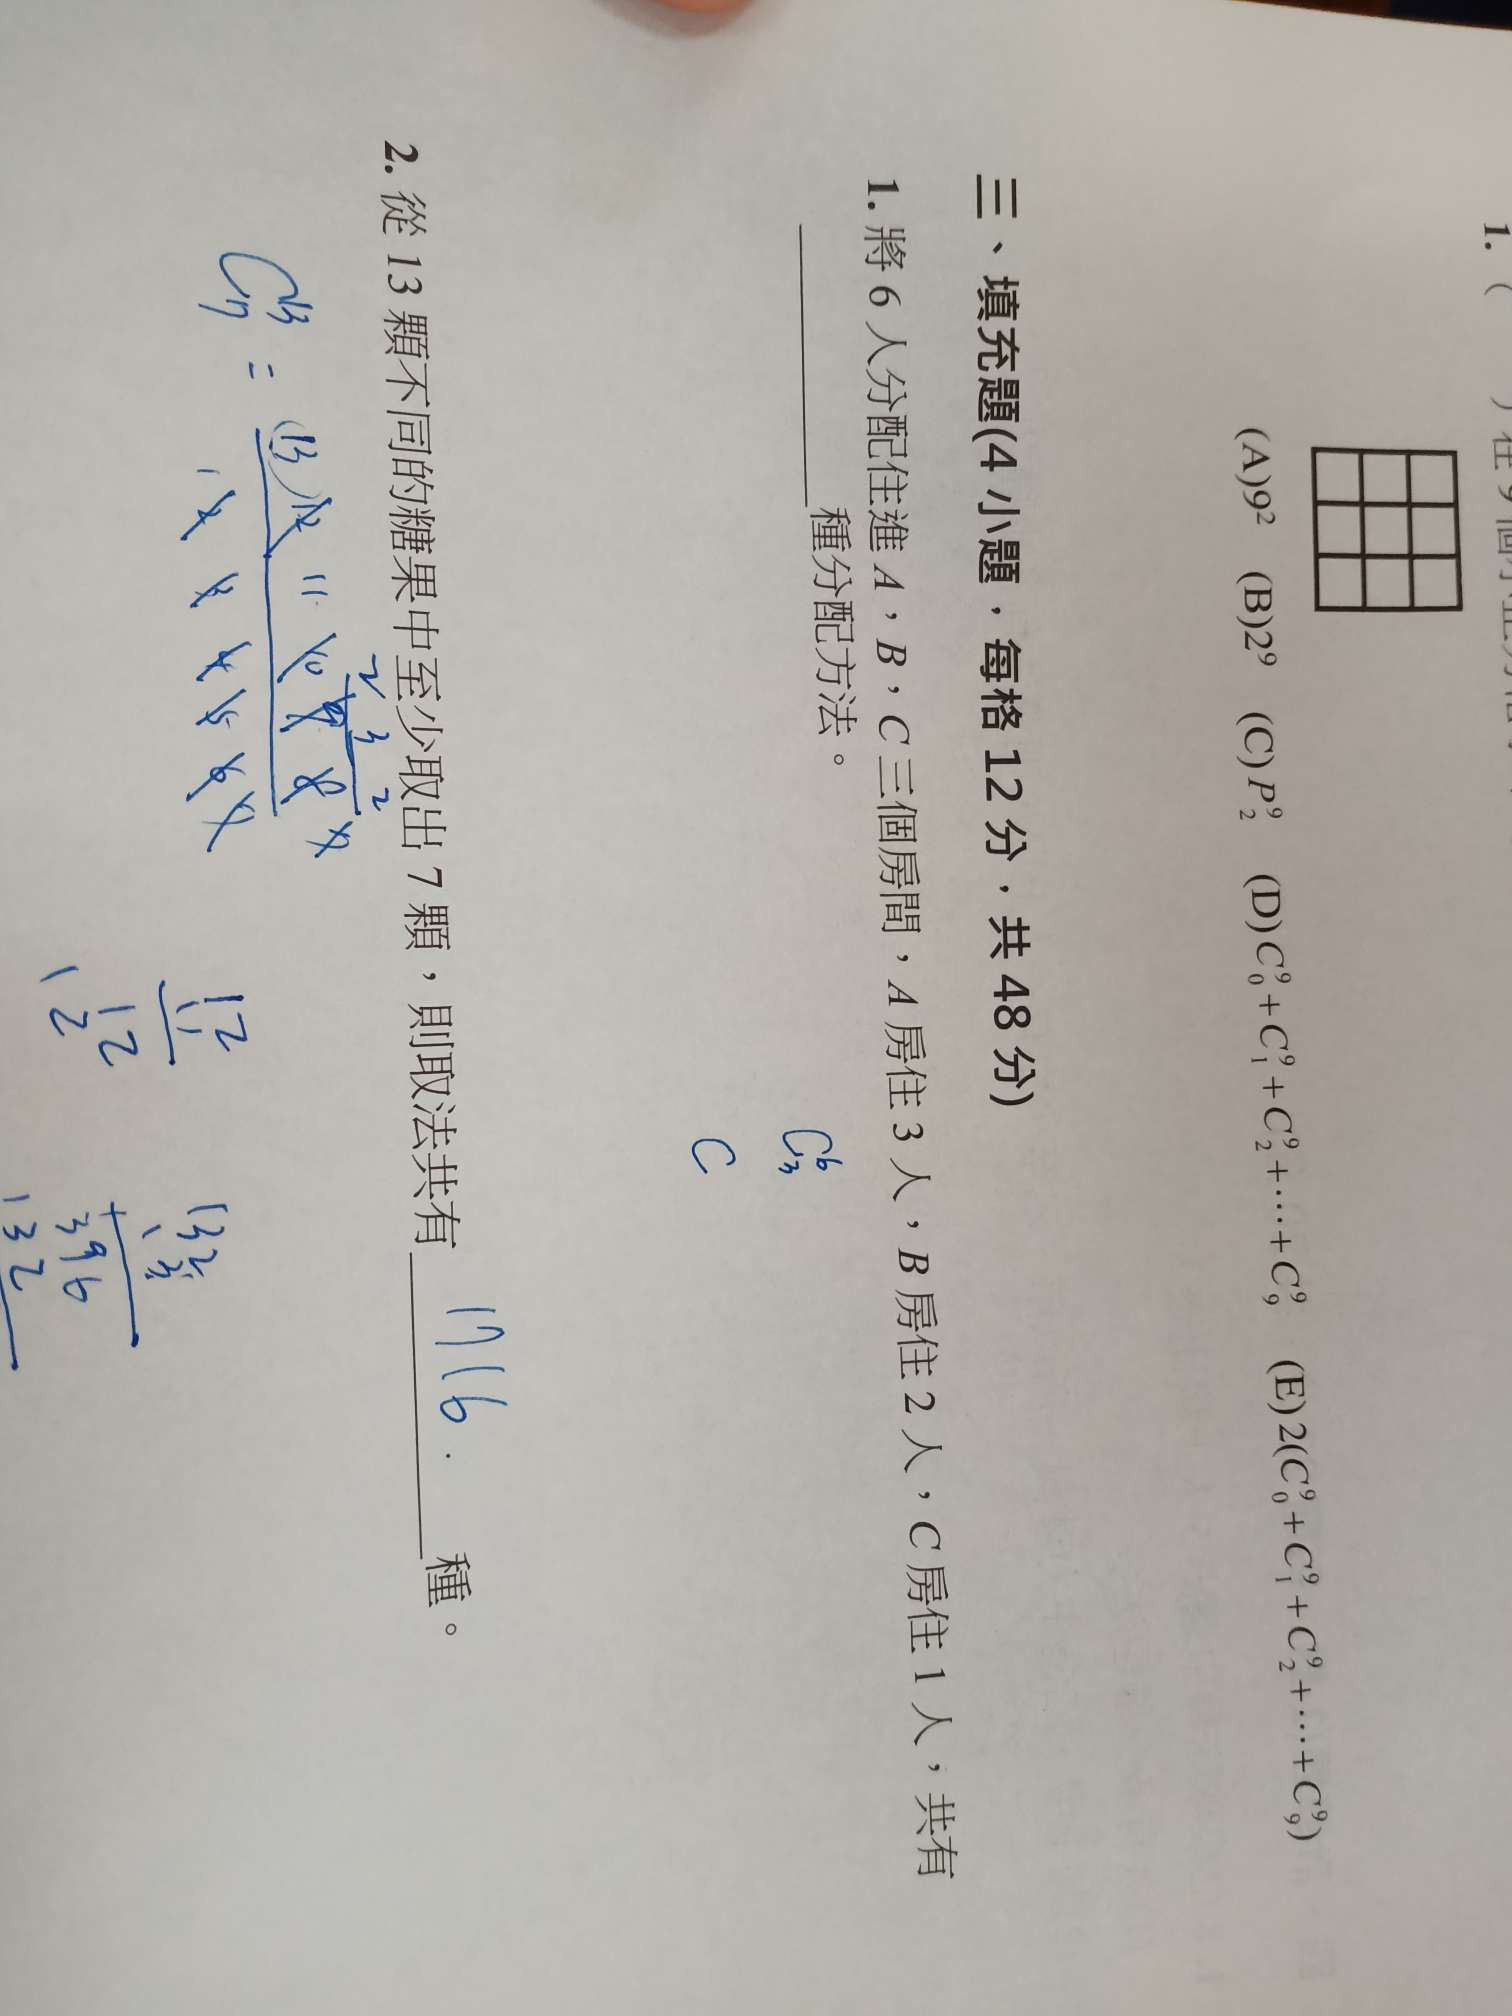 1. ( ) 在 9 個
(A)9² (B)2⁹ (C)P⁹₂ (D)C⁹₀+C⁹₁+C⁹₂+⋯+C⁹₉ (E)2(C⁹₀+C⁹₁+C⁹₂+⋯+C⁹₉)
三、填充題(4 小題，每格 12 分，共 48 分)
1. 將 6 人分配住進 A，B，C 三個房間，A 房住 3 人，B 房住 2 人，C 房住 1 人，共有
______種分配方法。
C⁶₃
C
2. 從 13 顆不同的糖果中至少取出 7 顆，則取法共有 1716. 種。
2 3 2
C¹³₇ = 13 12 11 10 9 8 7
1 2 3 4 5 6 7
12
11
12
12
132
13
396
132